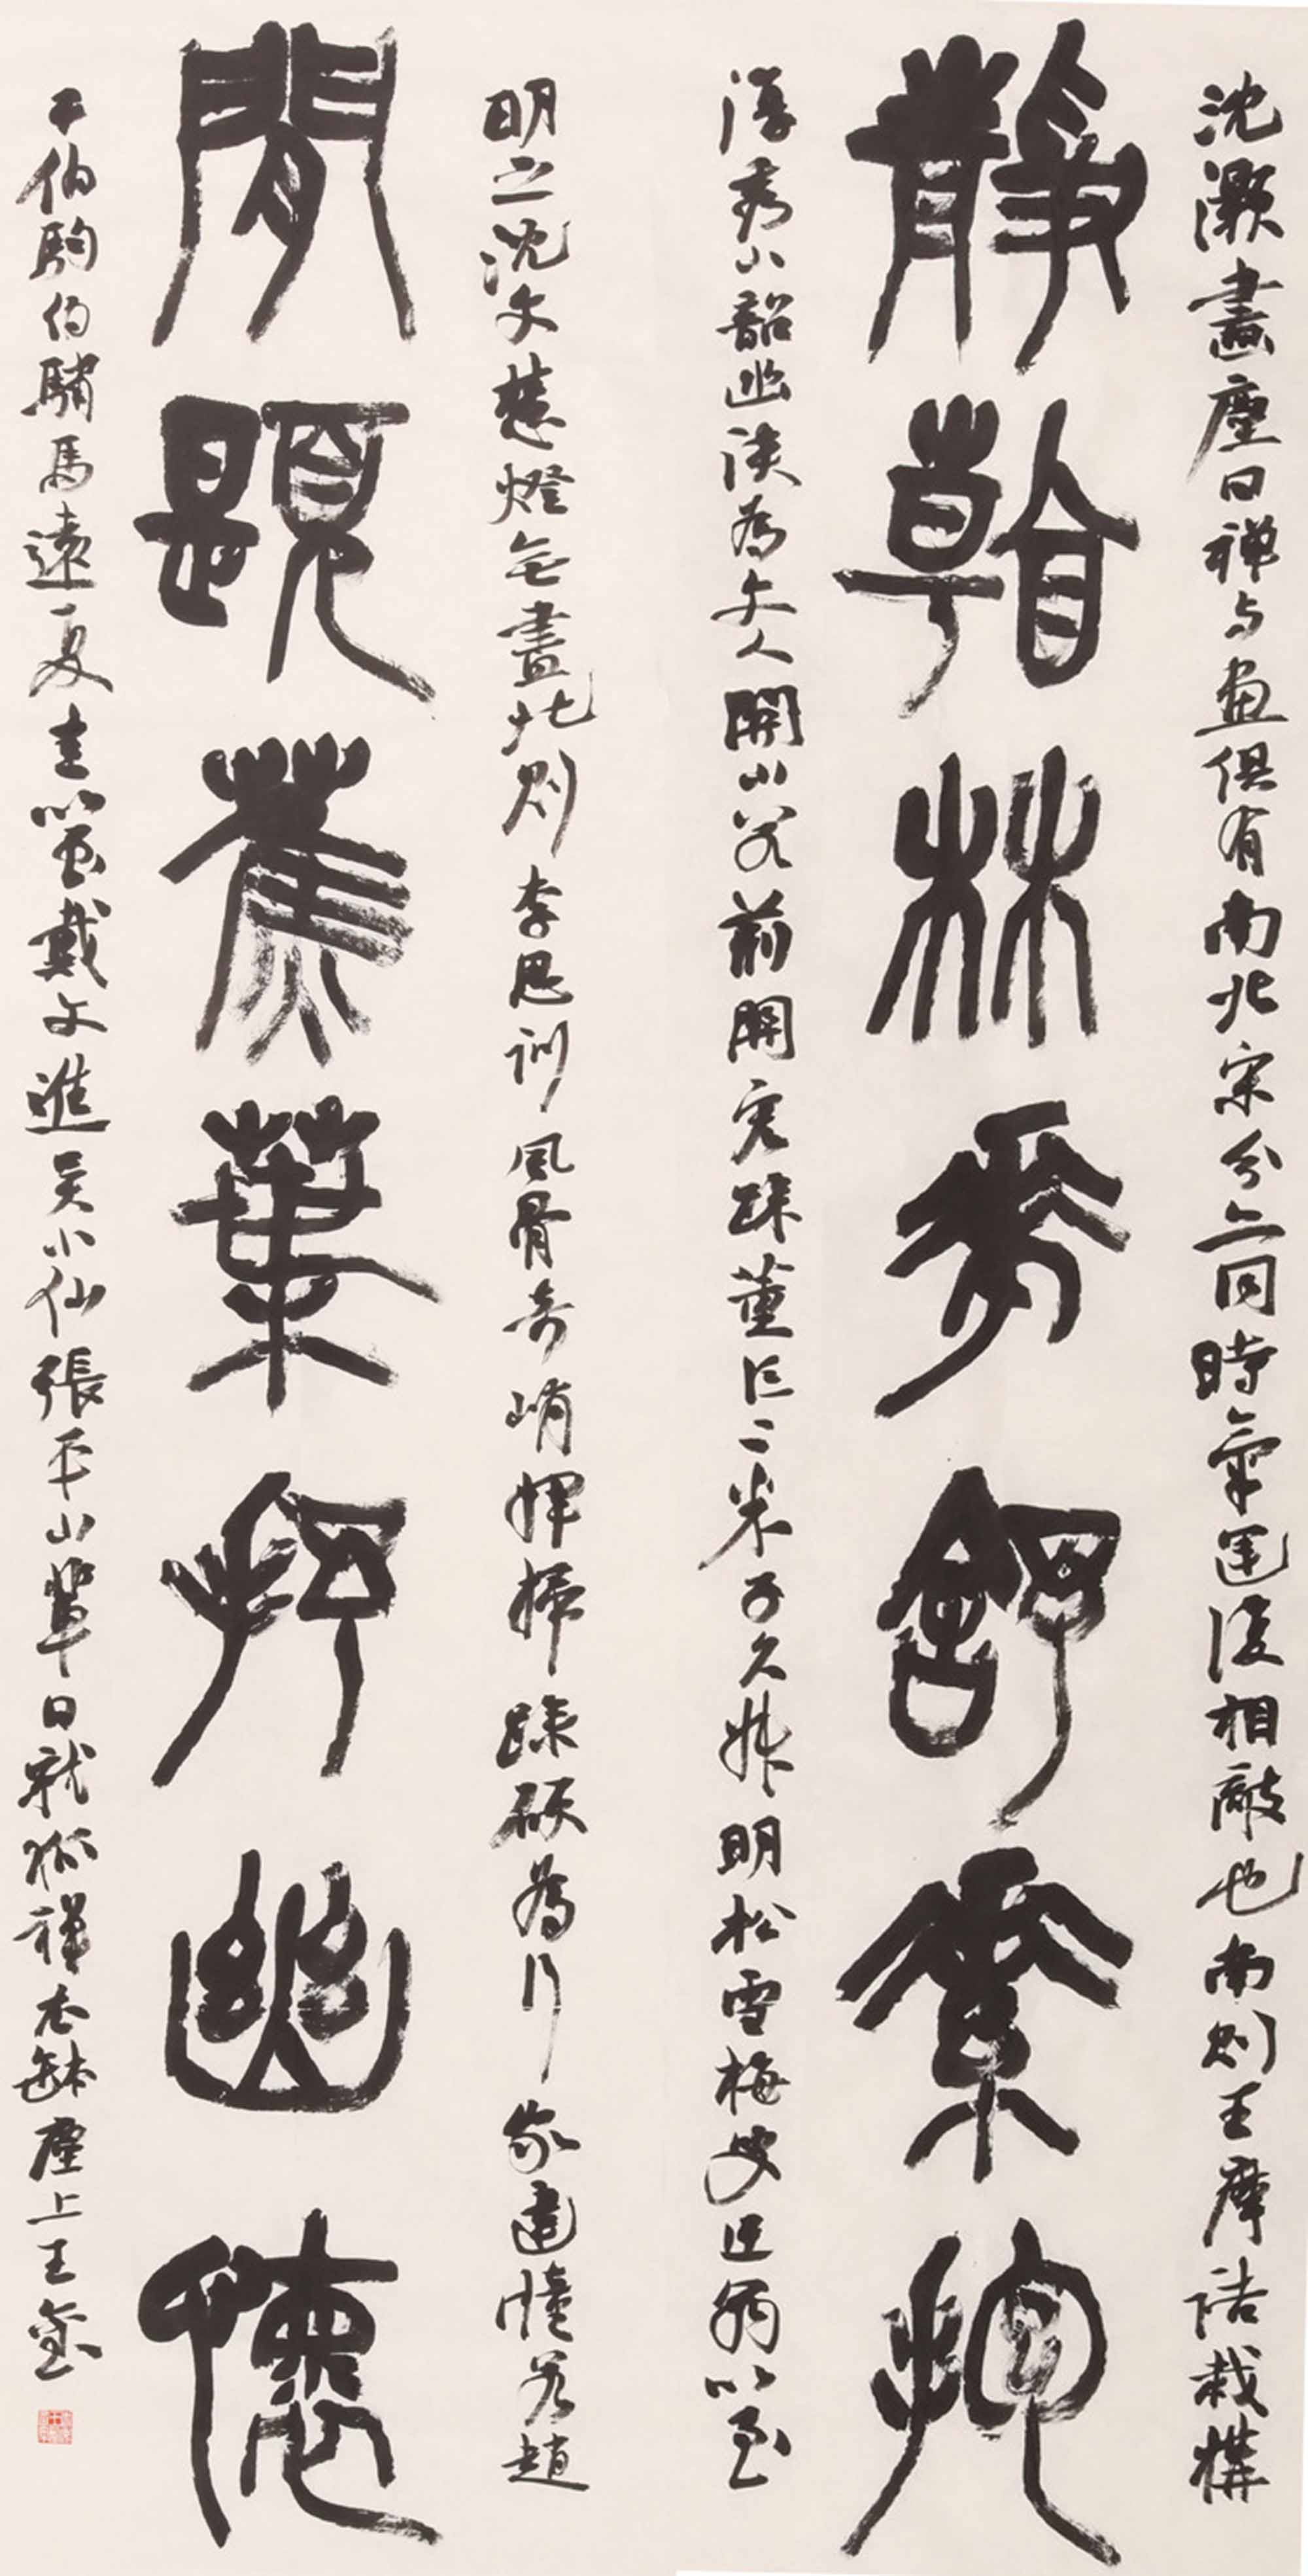 沈灝畫麈曰禪与畫俱有南北宗分亦同時氣運復相敵也南則王摩詰裁構
靜看林花舒素抱
淳秀出韶幽淡為文人開山若荊關宏璪董巨二米子久叔明松雪梅叟迂翁以至
明之沈文慧燈無盡北則李思訓風骨奇峭揮掃躁硬為行家建幢若趙
閒題蕉葉抒幽懷
干伯駒伯驌馬遠夏圭以至戴文進吳小仙張平山輩日就狐禪衣缽塵上王